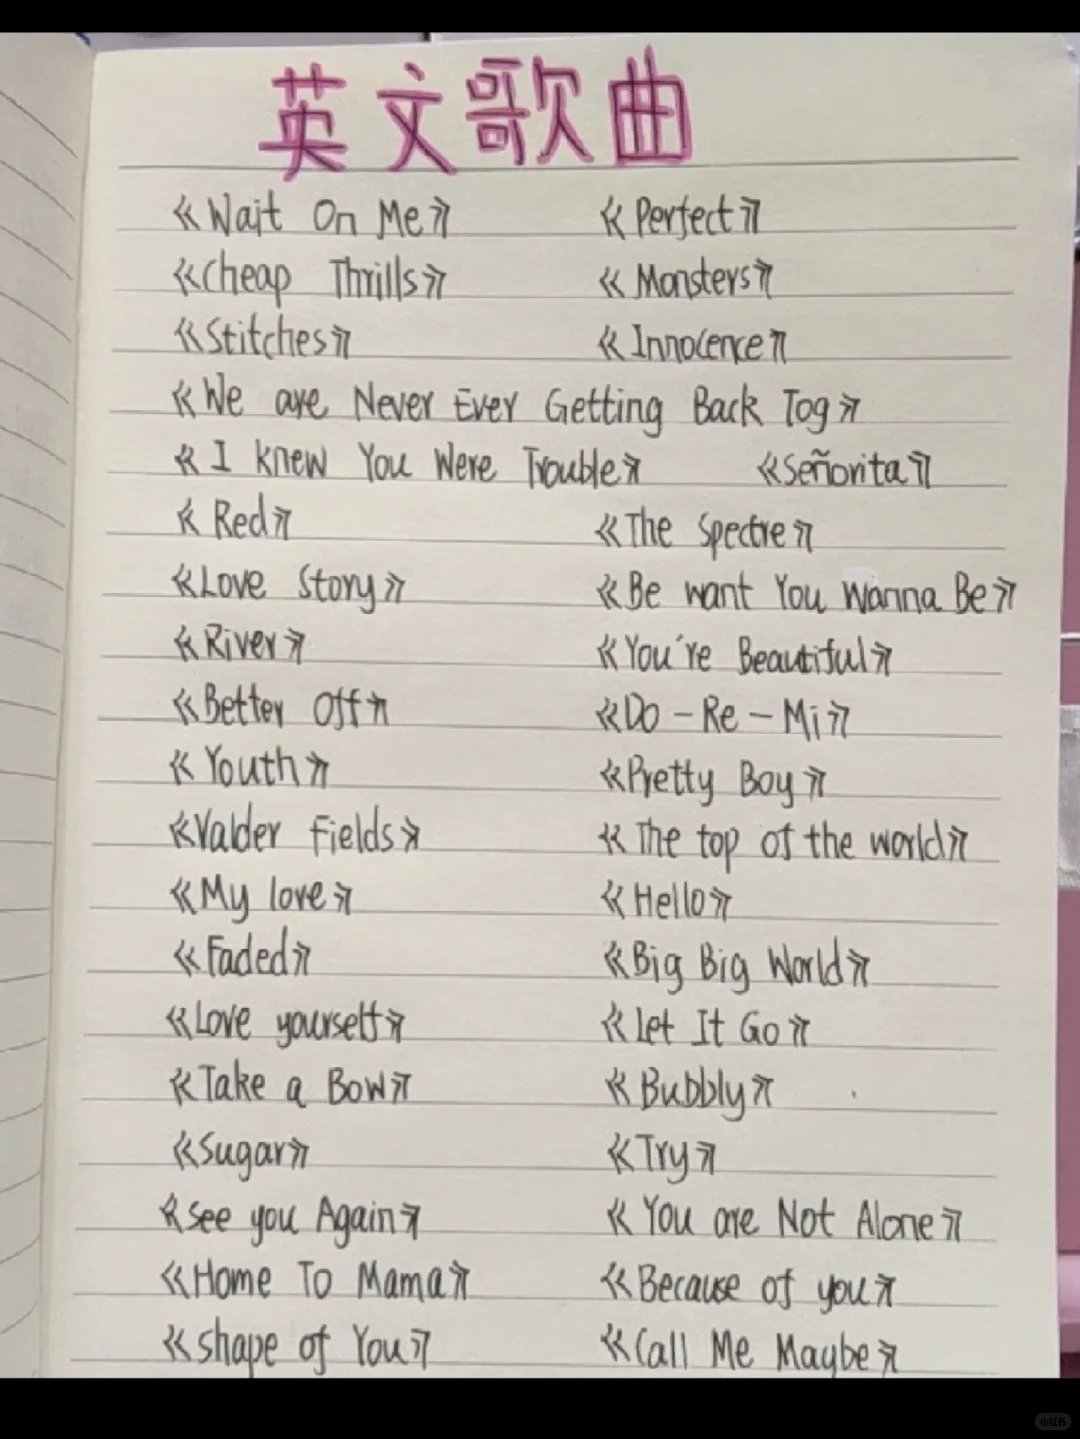 英文歌曲
《Wait On Me》 《Perfect》
《Cheap Thrills》 《Monsters》
《Stitches》 《Innocence》
《We are Never Ever Getting Back Tog》
《I knew You Were Trouble》 《Señorita》
《Red》 《The Spectre》
《Love Story》 《Be want You Wanna Be》
《River》 《You're Beautiful》
《Better Off》 《Do-Re-Mi》
《Youth》 《Pretty Boy》
《Valder Fields》 《The top of the world》
《My love》 《Hello》
《Faded》 《Big Big World》
《Love yourself》 《Let It Go》
《Take a Bow》 《Bubbly》
《Sugar》 《Try》
《See you Again》 《You are Not Alone》
《Home To Mama》 《Because of you》
《Shape of You》 《Call Me Maybe》
小红书